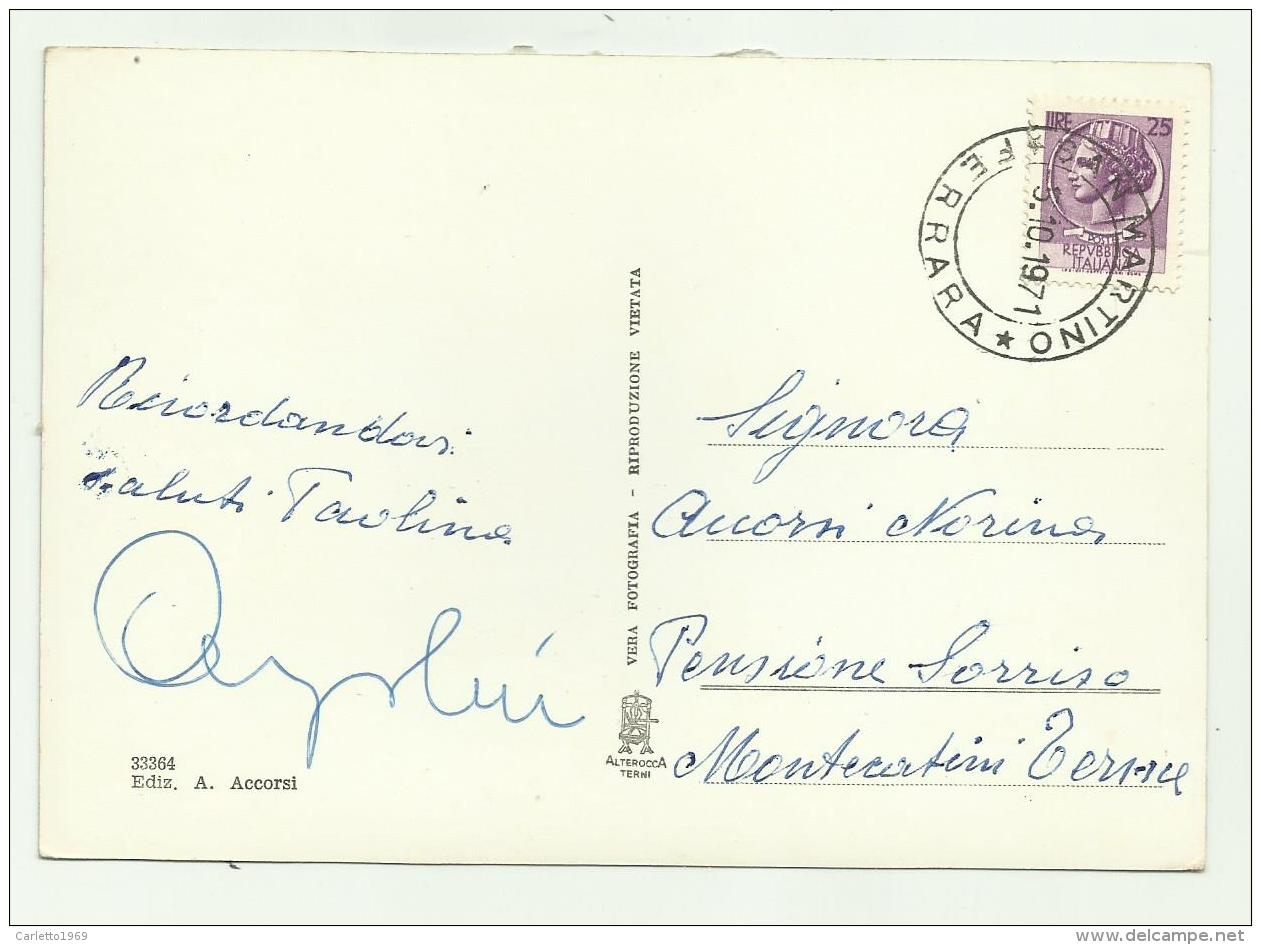 LIRE 25
POSTE
REPVBBLICA
ITALIANA
SAN MARTINO ★ FERRARA
5.10.1971
Reciordandovi
saluti Paolina
33364
Ediz. A. Accorsi
VERA FOTOGRAFIA - RIPRODUZIONE VIETATA
ALTEROCCA
TERNI
Signora
Accorsi Norina
Pensione Sorriso
Montecatini Terme
Carletto1969
www.delcampe.net